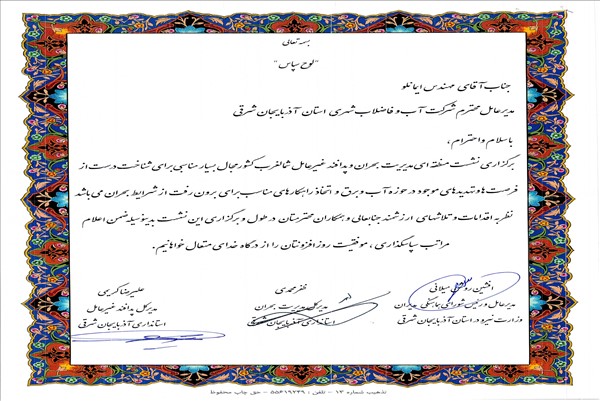 بسمه تعالی
"لوح سپاس"
جناب آقای مهندس ایمانلو
مدیرعامل محترم شرکت آب و فاضلاب شهری استان آذربایجان شرقی
باسلام واحترام،
برگزاری نشست منطقه ای مدیریت بحران و پدافند غیرعامل شمالغرب کشور مجال بسیار مناسبی برای شناخت درست از
فرصت ها و تهدیدهای موجود در حوزه آب و برق و اتخاذ راهکارهای مناسب برای برون رفت از شرایط بحران می باشد
نظر به اقدامات و تلاشهای ارزشمند جنابعالی و همکاران محترمتان در طول و برگزاری این نشست بدینوسیله ضمن اعلام
مراتب سپاسگذاری، موفقیت روزافزونتان را از درگاه خدای متعال خواهانیم.
افشین میلانی
مدیرعامل و رئیس شورای هماهنگی مدیران
وزارت نیرو در استان آذربایجان شرقی
ظفر محمدی
مدیرکل مدیریت بحران
استانداری آذربایجان شرقی
علیرضا کریمی
مدیرکل پدافند غیرعامل
استانداری آذربایجان شرقی
تذهیب شماره ۱۳ - تلفن: ۵۵۶۱۹۲۳۹ - حق چاپ محفوظ